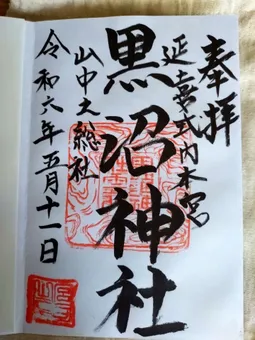 奉拝
延喜式内本宮
黒沼神社
山中之総社
令和六年五月十一日